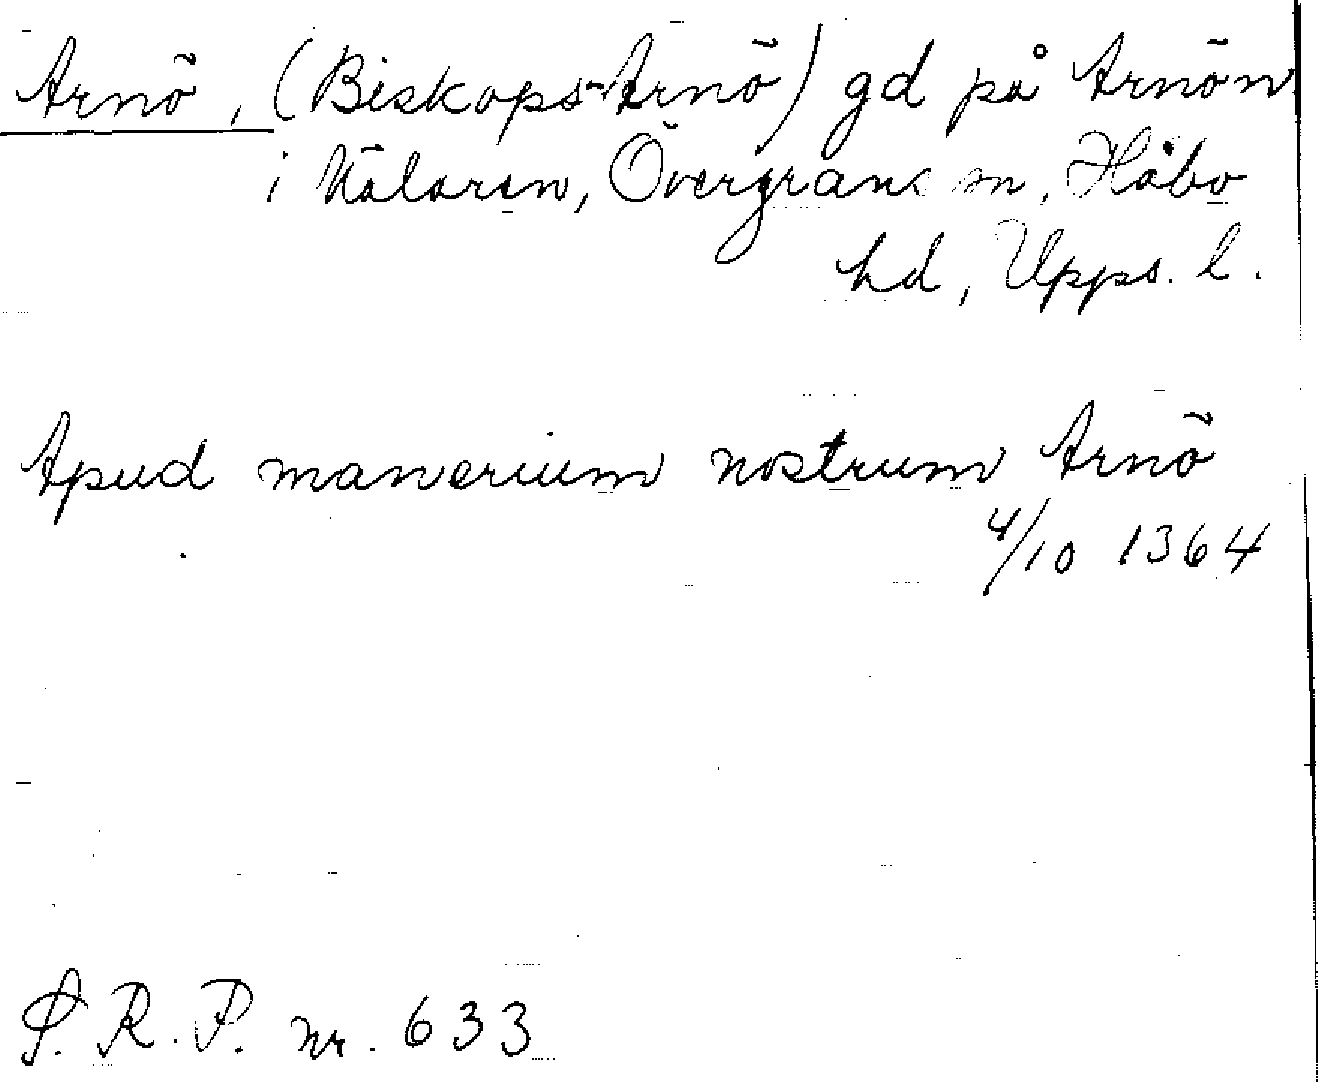 Arnö, (Biskops-Arnö) gd på Arnön
i Mälaren, Övergrans sn, Håbo
hd, Upps. l.
Apud manerium nostrum Arnö
4/10 1364
S. R. P. nr. 633